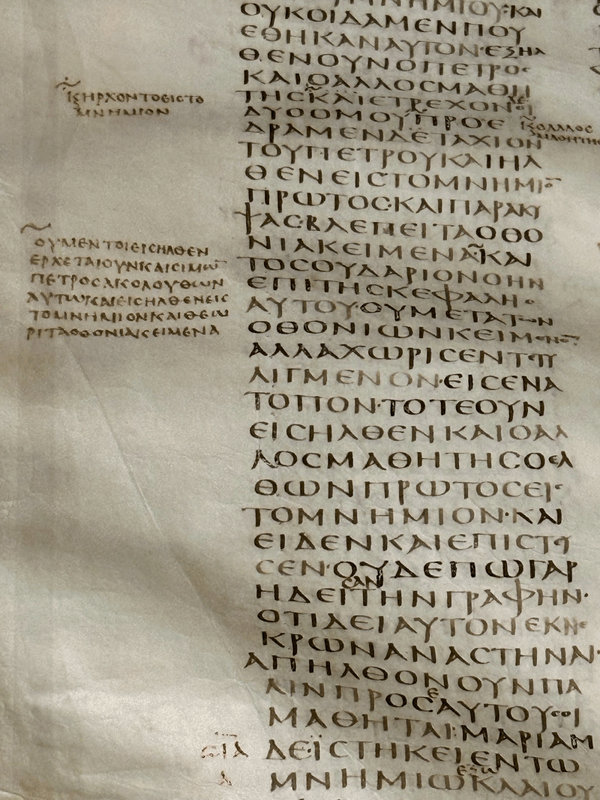 ΜΝΗΜΙΟΥ·ΚΑΙ
ΟΥΚΟΙΔΑΜΕΝΠΟΥ
ΕΘΗΚΑΝΑΥΤΟΝ·ΕΞΗΛ
ΘΕΝΟΥΝΟΠΕΤΡΟϹ
ΚΑΙΟΑΛΛΟϹΜΑΘΗ
ΤΗϹΚΑΙΕΤΡΕΧΟΝΔΕΟΙ
ΔΥΟΟΜΟΥΠΡΟΕ
ΔΡΑΜΕΝΔΕΤΑΧΙΟΝ
ΤΟΥΠΕΤΡΟΥΚΑΙΗΛ
ΘΕΝΕΙϹΤΟΜΝΗΜΙΟ
ΠΡΩΤΟϹ·ΚΑΙΠΑΡΑΚΥ
ΨΑϹΒΛΕΠΕΙΤΑΟΘΟ
ΝΙΑΚΕΙΜΕΝΑΚΑΙ
ΤΟϹΟΥΔΑΡΙΟΝΟΗΝ
ΕΠΙΤΗϹΚΕΦΑΛΗϹ
ΑΥΤΟΥ·ΟΥΜΕΤΑΤΩΝ
ΟΘΟΝΙΩΝΚΕΙΜΕΝΟΝ
ΑΛΛΑΧΩΡΙϹΕΝΤΕΤΥ
ΛΙΓΜΕΝΟΝ·ΕΙϹΕΝΑ
ΤΟΠΟΝ·ΤΟΤΕΟΥΝ
ΕΙϹΗΛΘΕΝΚΑΙΟΑΛ
ΛΟϹΜΑΘΗΤΗϹΟΕΛ
ΘΩΝΠΡΩΤΟϹΕΙϹ
ΤΟΜΝΗΜΙΟΝ·ΚΑΙ
ΕΙΔΕΝΚΑΙΕΠΙϹΤΕΥ
ϹΕΝ·ΟΥΔΕΠΩΓΑΡ
ΗΔΕΙϹΑΝΤΗΝΓΡΑΦΗΝ·
ΟΤΙΔΕΙΑΥΤΟΝΕΚΝΕ
ΚΡΩΝΑΝΑϹΤΗΝΑΙ·
ΑΠΗΛΘΟΝΟΥΝΠΑ
ΛΙΝΠΡΟϹΕΑΥΤΟΥϹΟΙ
ΜΑΘΗΤΑΙ·ΜΑΡΙΑΜ
ΔΕΪϹΤΗΚΕΙΕΝΤΩ
ΜΝΗΜΙΩΕΞΩΚΛΑΙΟΥ
ΚΑΙΗΡΧΟΝΤΟΕΙϹΤΟ
ΜΝΗΜΙΟΝ
ΟΥΜΕΝΤΟΙΕΙϹΗΛΘΕΝ
ΕΡΧΕΤΑΙΟΥΝΚΑΙϹΙΜΩ
ΠΕΤΡΟϹΑΚΟΛΟΥΘΩΝ
ΑΥΤΩΚΑΙΕΙϹΗΛΘΕΝΕΙϹ
ΤΟΜΝΗΜΙΟΝΚΑΙΘΕΩ
ΡΙΤΑΟΘΟΝΙΑΚΕΙΜΕΝΑ
ϹΙΑ
Α